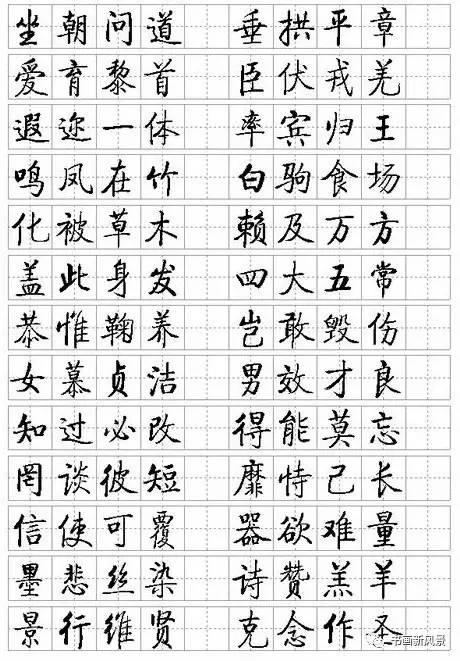 坐朝问道 垂拱平章
爱育黎首 臣伏戎羌
遐迩一体 率宾归王
鸣凤在竹 白驹食场
化被草木 赖及万方
盖此身发 四大五常
恭惟鞠养 岂敢毁伤
女慕贞洁 男效才良
知过必改 得能莫忘
罔谈彼短 靡恃己长
信使可覆 器欲难量
墨悲丝染 诗赞羔羊
景行维贤 克念作圣
书画新风景